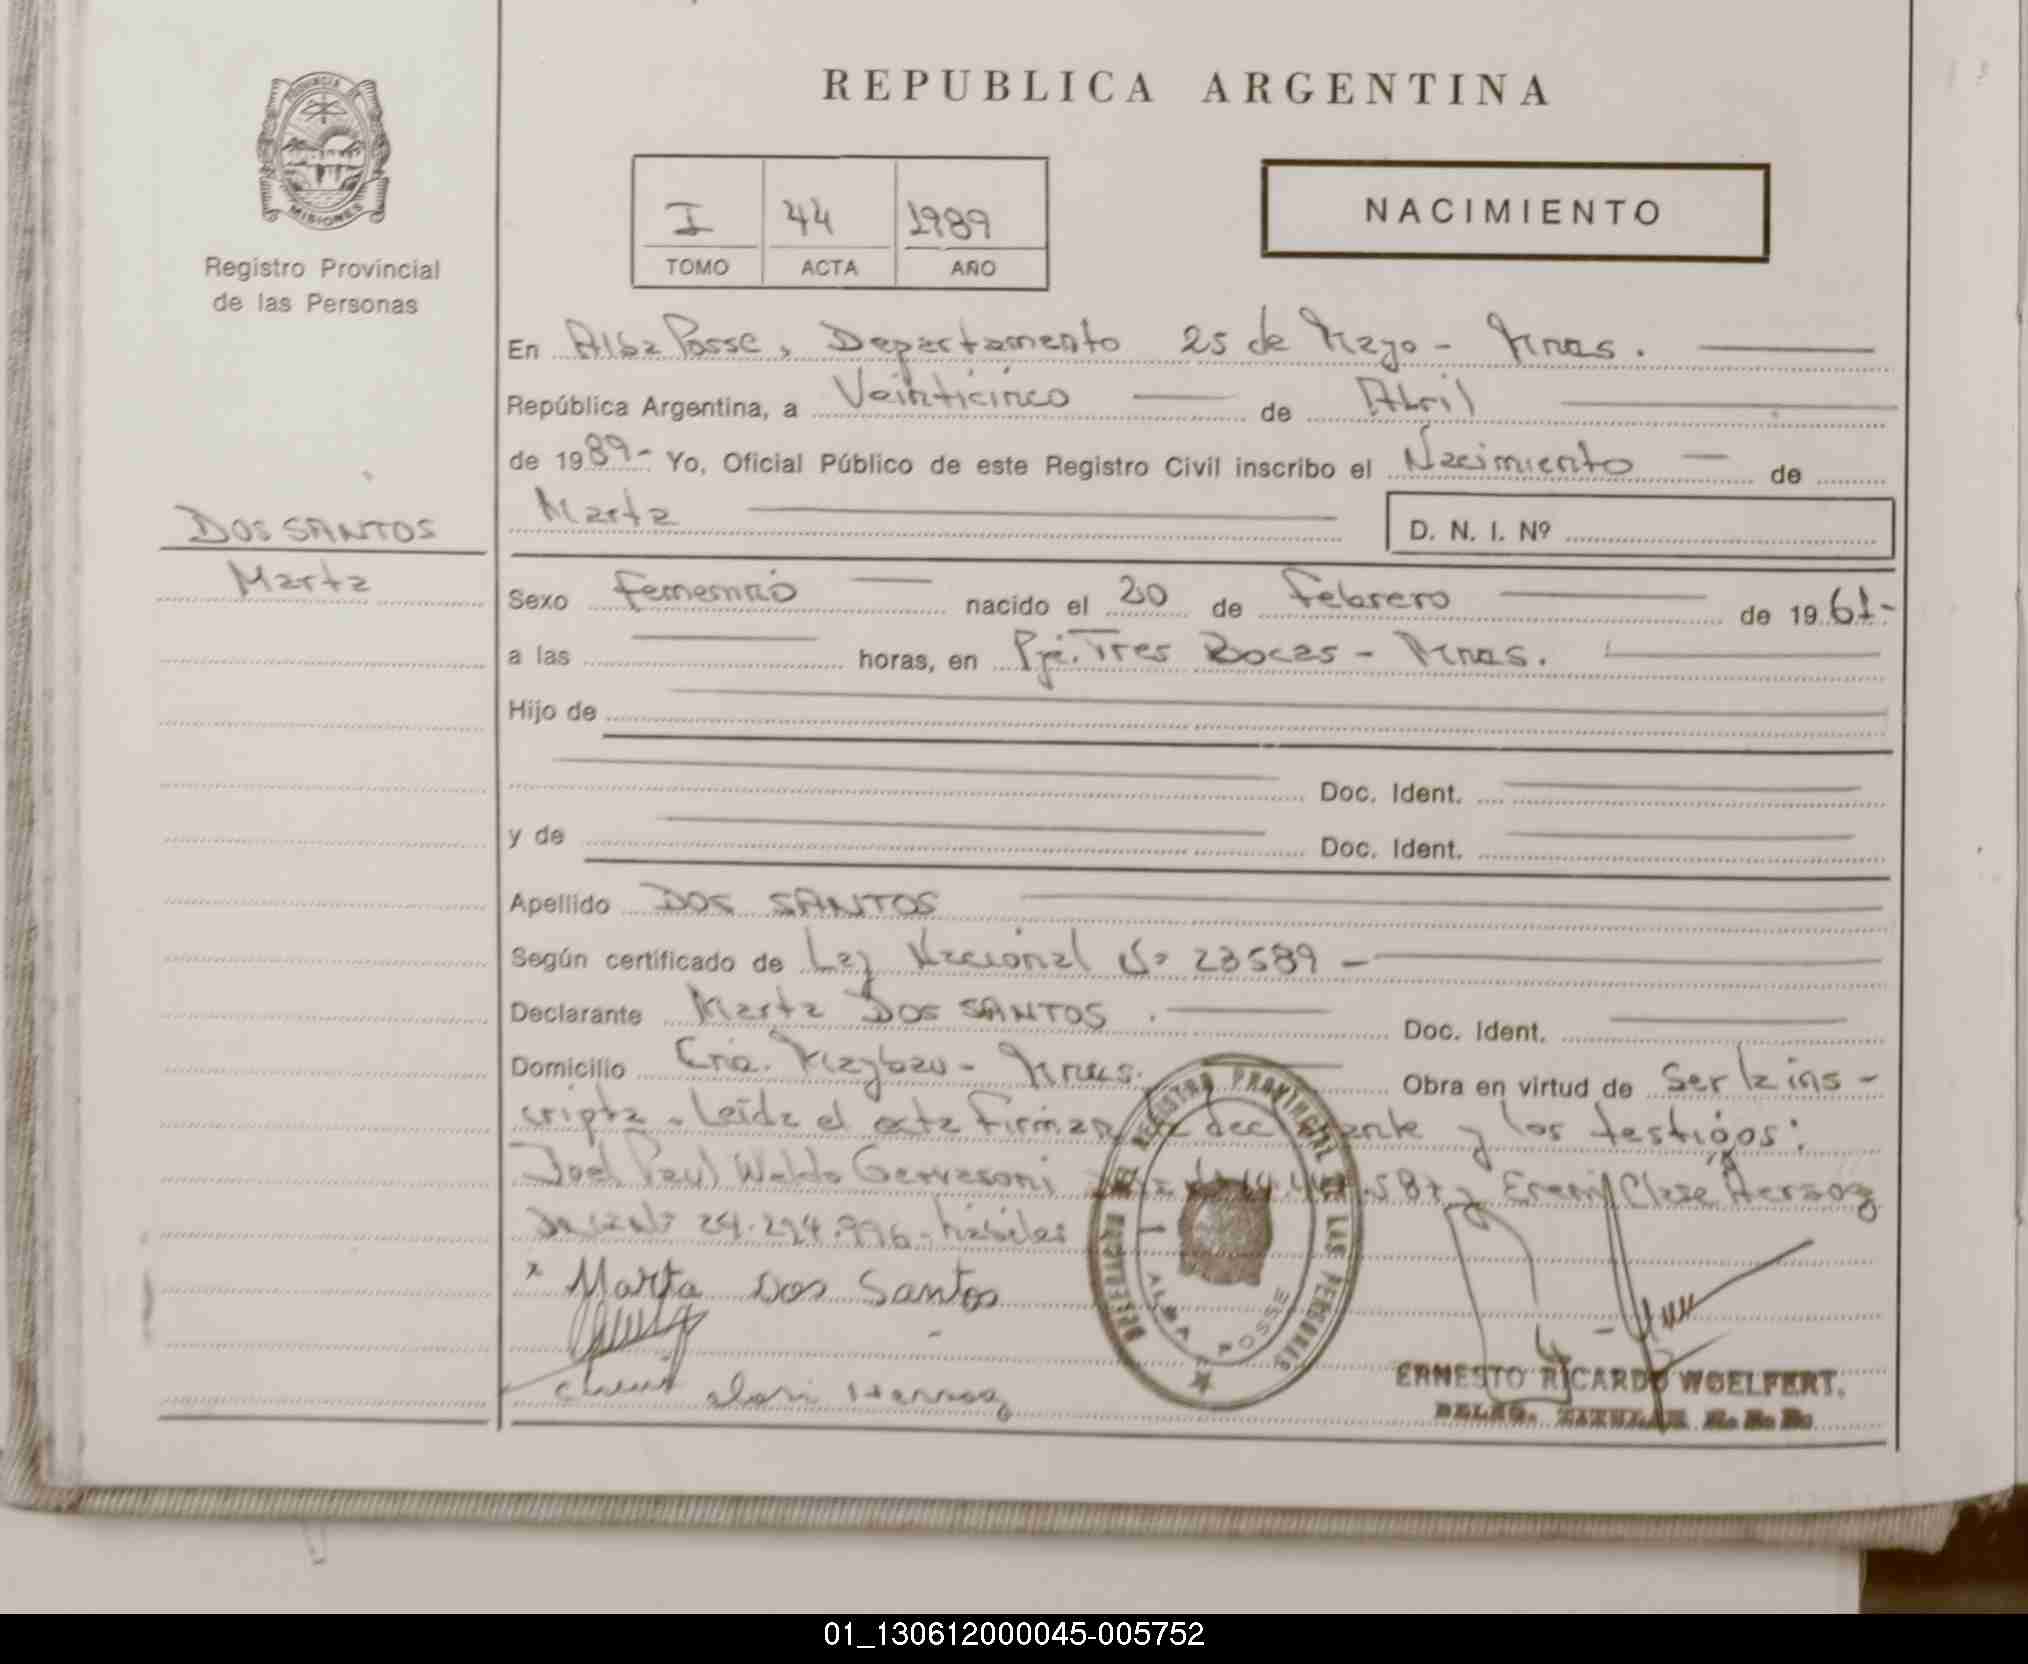 REPUBLICA ARGENTINA
PROVINCIA DE
MISIONES
Registro Provincial
de las Personas
I 44 1989
TOMO ACTA AÑO
NACIMIENTO
En Alba Posse, Departamento 25 de Mayo - Mnes.
República Argentina, a Veinticinco de Abril
de 1989- Yo, Oficial Público de este Registro Civil inscribo el Nacimiento de
Marta
D. N. I. Nº
DOS SANTOS
Marta
Sexo Femenino nacido el 20 de Febrero de 1961-
a las horas, en Pje. Tres Bocas - Mnes.
Hijo de
Doc. Ident.
y de Doc. Ident.
Apellido DOS SANTOS
Según certificado de Ley Nacional Nº 23589 -
Declarante Marta DOS SANTOS. Doc. Ident.
Domicilio Cnia. Maybau - Mnes. Obra en virtud de Ser la ins-
cripta. Leída el acta firman la declarante y los testigos:
Joel Paul Waldo Gervasoni y Ereni Clase Herzog
24.294.996 - hábiles
x Marta Dos Santos
Herzog
REGISTRO PROVINCIAL DE LAS PERSONAS
ALBA POSSE
ERNESTO RICARDO WOELFERT.
DELEG. TITULAR R. P. P.
01_130612000045-005752